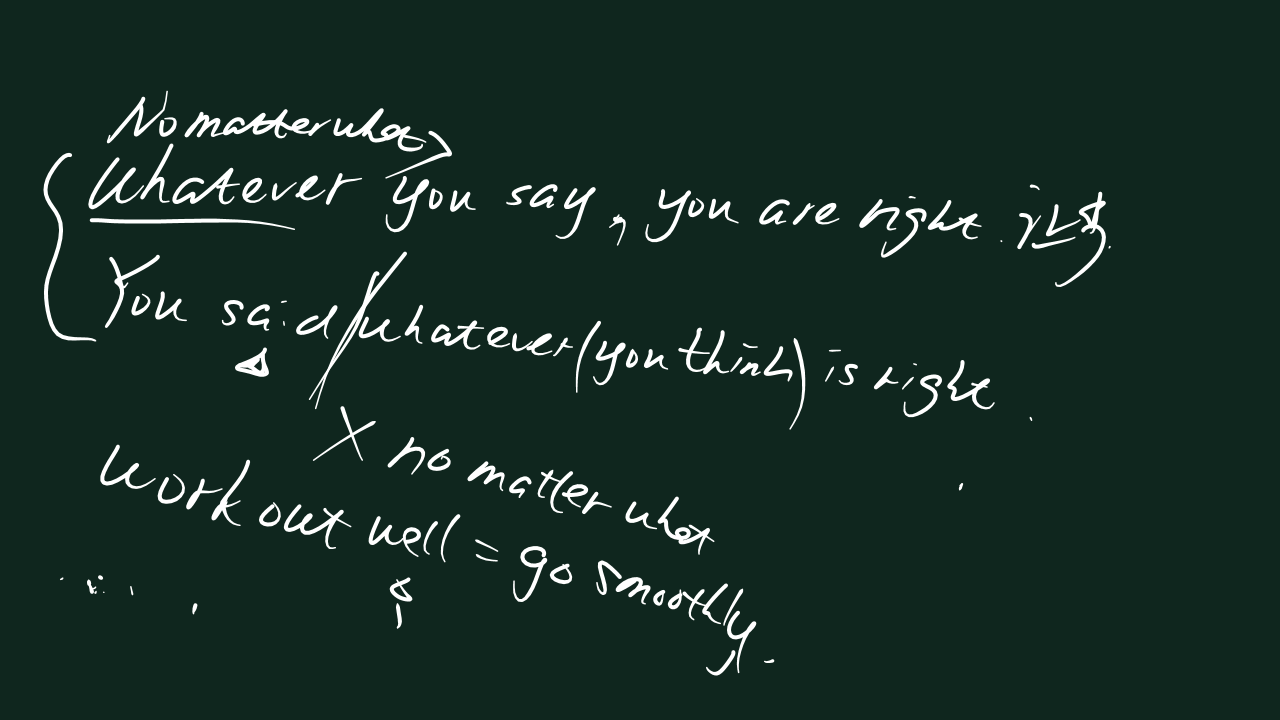 No matter what
Whatever you say, you are right.
You said / whatever (you think) is right.
X no matter what
work out well = go smoothly.